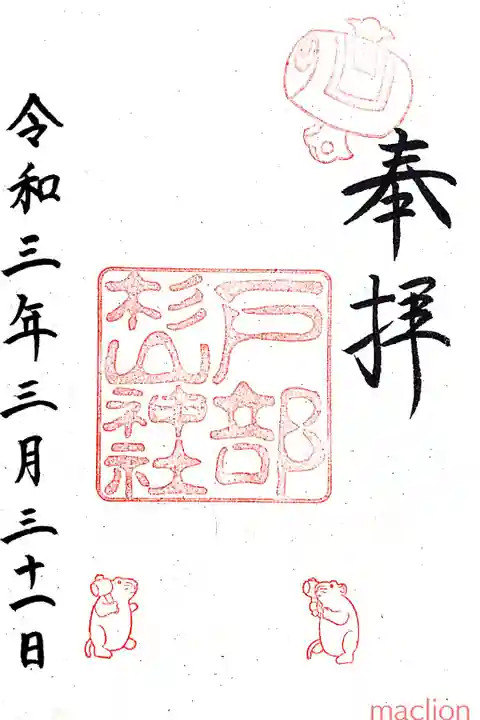 奉拝
戸部
杉山
神社
令和三年三月三十一日
maclion